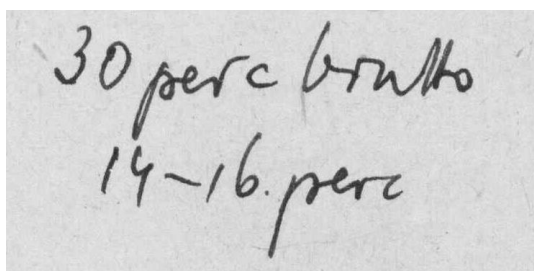 30 perc brutto
14-16. perc